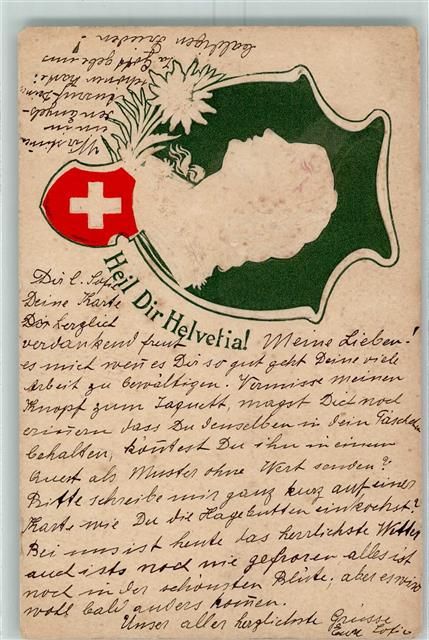 baldigen Frieden!
Ja Gott gebe uns
schönen Karte!
Heil Dir Helvetia!
Dir l. Sofie
Deine Karte
Dir herzlich
verdankend freut
Meine Lieben!
es mich wen̄ es Dir so gut geht Deine viele
Arbeit zu bewältigen. Vermisse meinen
Knopf zum Jaquett, magst Dich noch
erin̄ern dass Du denselben in dein Täschchen
behalten, kön̄test Du ihn in einem
Couvert als Muster ohne Wert senden?
Bitte schreibe mir ganz kurz auf einer
Karte wie Du die Hagebutten einkochst?
Bei uns ist heute das herrlichste Wetter
auch ists noch nie gefroren alles ist
noch in der schönsten Blüte, aber es wird
wohl bald anders kom̄en.
Unser aller herzlichste Grüsse
Eure Sofie